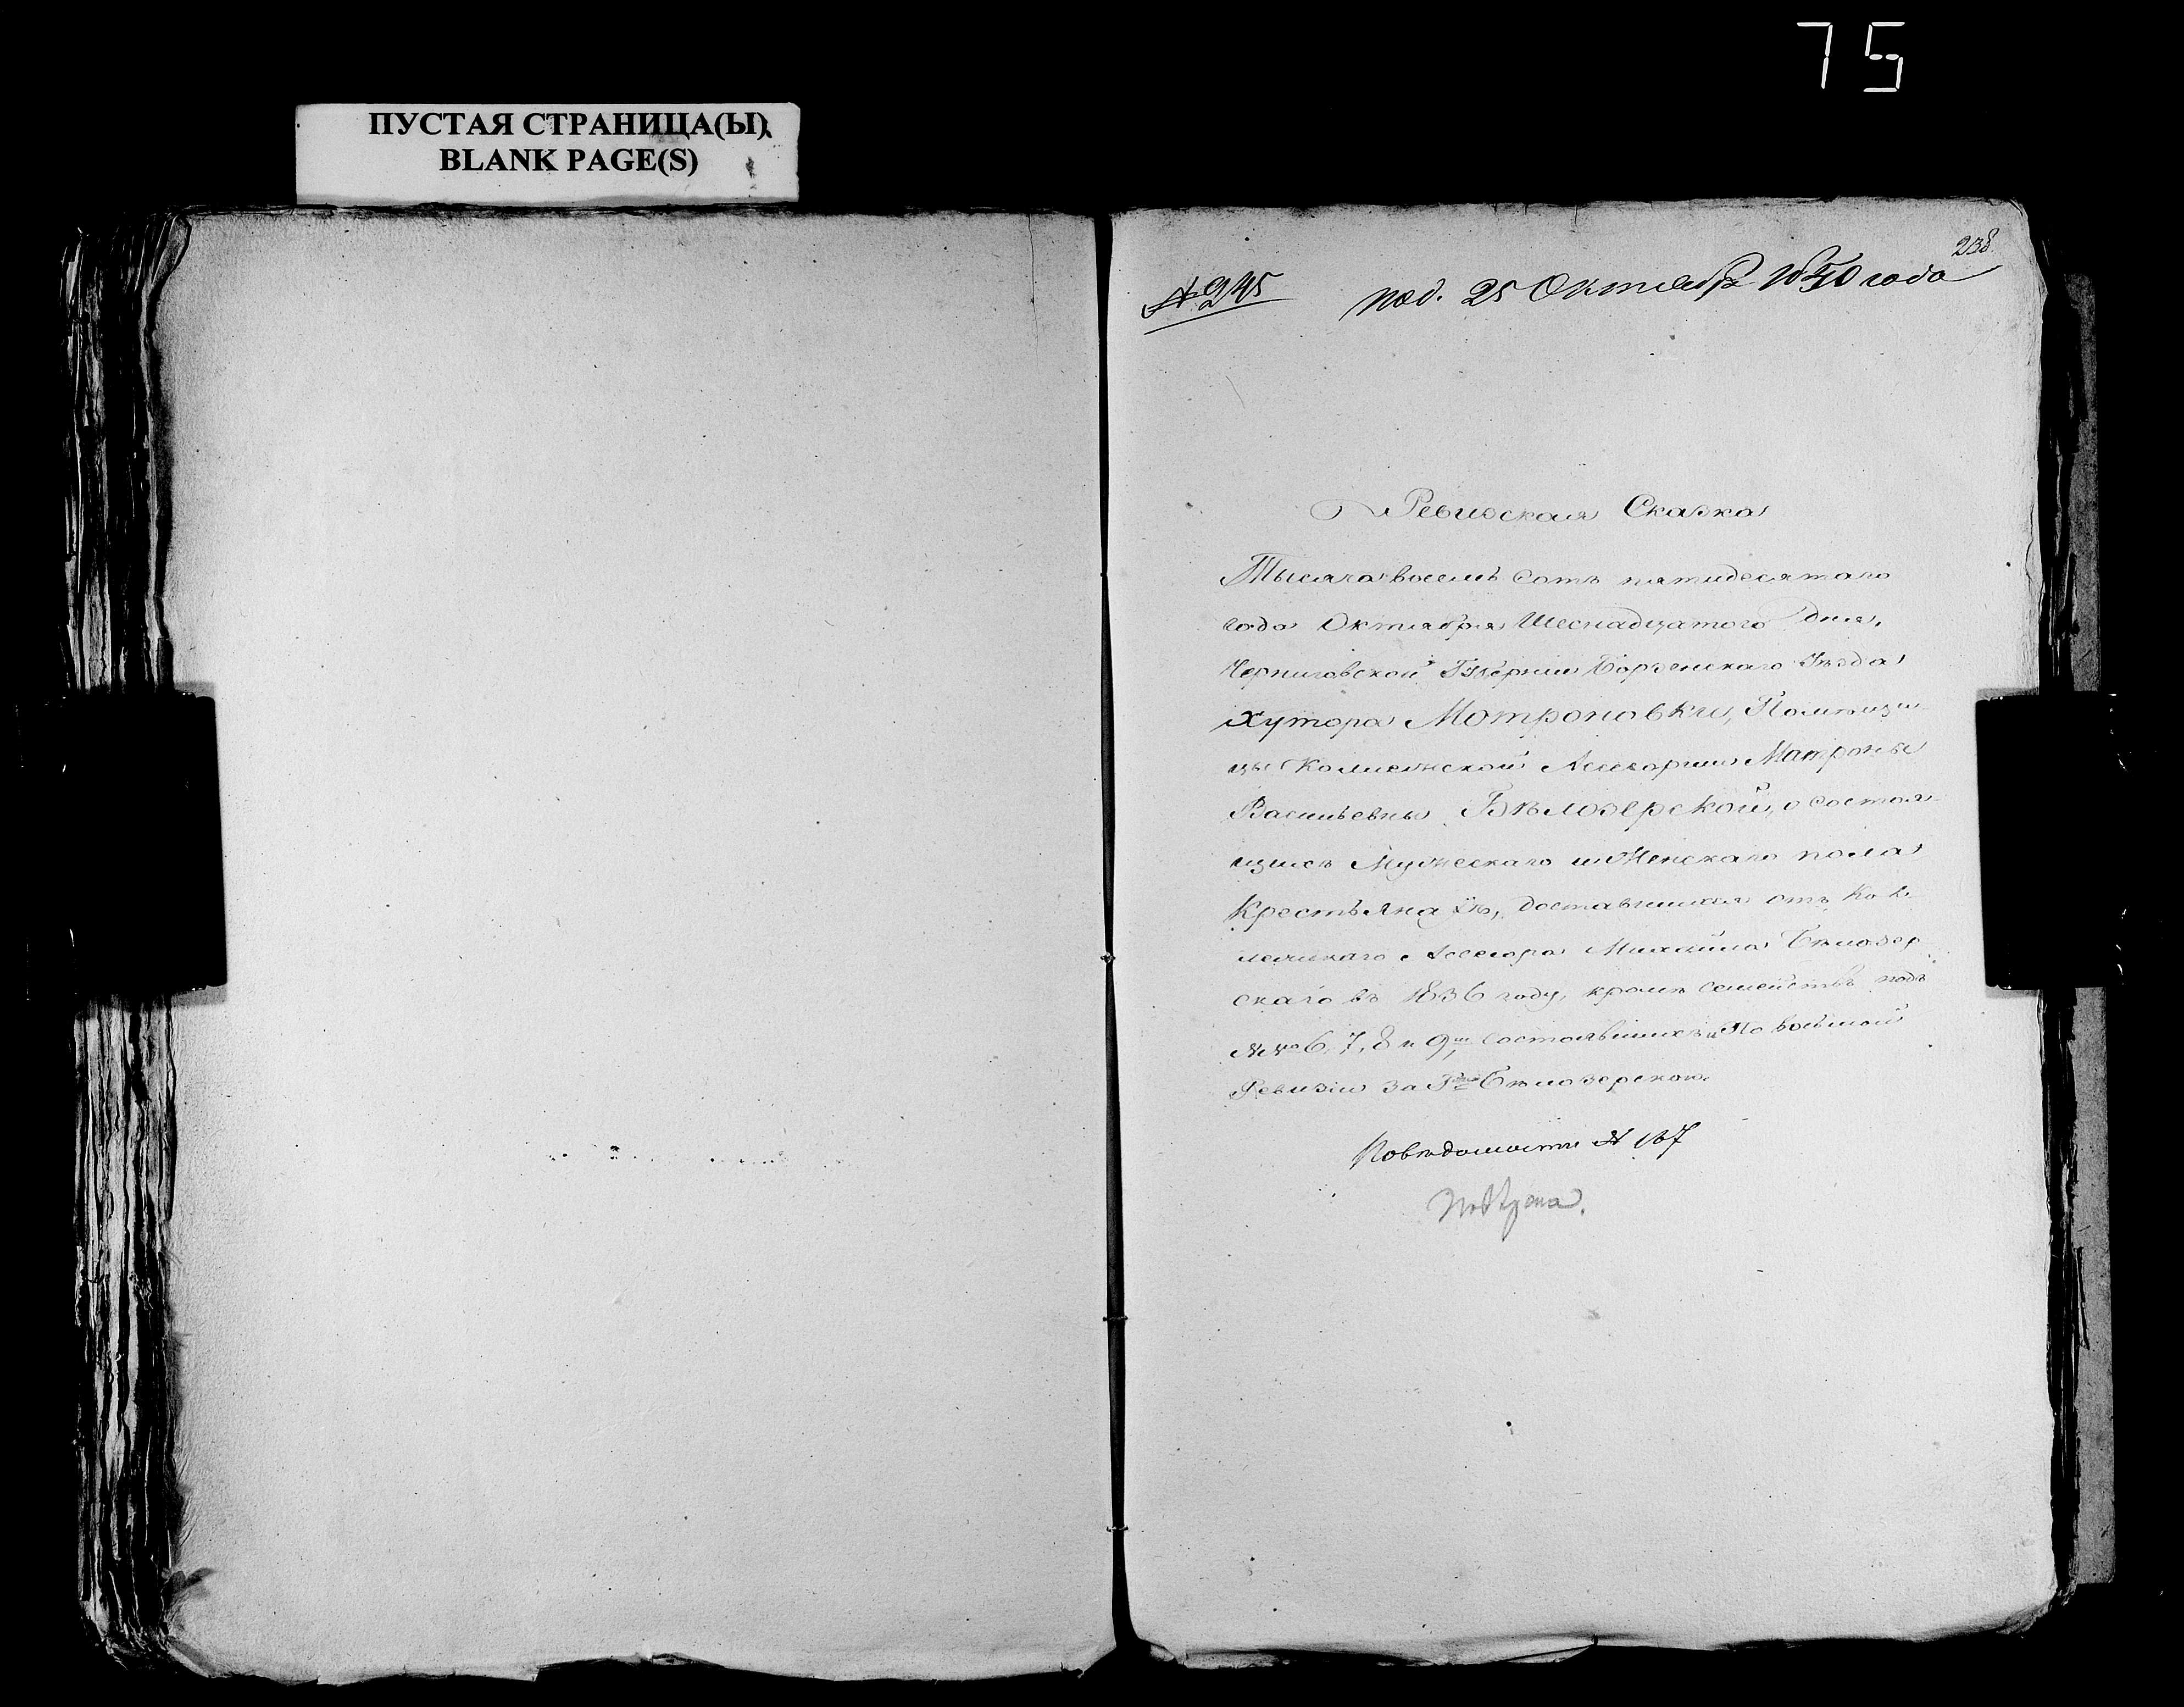 75
ПУСТАЯ СТРАНИЦА(Ы)
BLANK PAGE(S)
238
№ 245 под. 25 Октября 1850 года
Ревизская Сказка
Тысяча восемь сотъ пятидесятаго
года Октября Шеснадцатого дня,
Черниговской Губерніи Борзенскаго Уѣзда
хутора Мотроновки, Помѣщи-
цы Коллежской Ассесорши Матроны
Васильевны Бѣлозерской, о состоя-
щихъ Мужескаго и Женскаго пола
Крестьянахъ, доставшихся отъ Кол-
лежскаго Ассесора Михайла Бѣлозер-
скаго въ 1836 году, кромѣ семействъ подъ
№№ 6, 7, 8 и 9м, состоявшихъ и по восьмой
Ревизіи за Гжею Бѣлозерскою.
По вѣдомости № 187